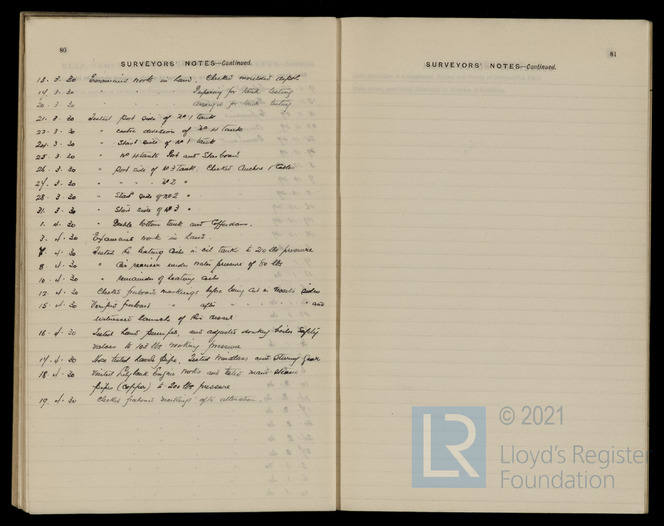 80
SURVEYORS' NOTES—Continued.
13. 3. 20 Examined work in hand. Checked moulded depth
14. 3. 20 " " " Preparing for tank testing
20. 3. 20 " " " arranged for tank testing
21. 3. 20 Tested Port side of No 1 tank
22. 3. 20 " centre division of No 4 tank
24. 3. 20 " Starb side of No 1 tank
25. 3. 20 " No 4 tank Port and Starboard
26. 3. 20 " Port side of No 3 tank. Checked Anchors & Cable
27. 3. 20 " " " No 2 "
28. 3. 20 " Starb side of No 2 "
31. 3. 20 " Starb side of No 3 "
1. 4. 20 " Double bottom tank and Cofferdams.
3. 4. 20 Examined work in hand
7. 4. 20 Tested the heating coils in oil tank to 200 lbs pressure
8. 4. 20 " Air receiver under water pressure of 80 lbs
10. 4. 20 " remainder of heating coils
12. 4. 20 Checked freeboard markings before being cut on vessel's sides
15. 4. 20 Verified freeboard " after " " " " and
witnessed launch of this vessel
16. 4. 20 Tested hand pumps, and adjusted donkey boiler safety
valves to 103 lbs working pressure
17. 4. 20 Hose tested hawse pipe. Tested Windlass and Steering Gear
18. 4. 20 Visited Engine Works and tested main steam
pipes (copper) to 200 lbs pressure
19. 4. 20 Checked freeboard markings after alteration.
81
SURVEYORS' NOTES—Continued.
LR
© 2021
Lloyd's Register
Foundation